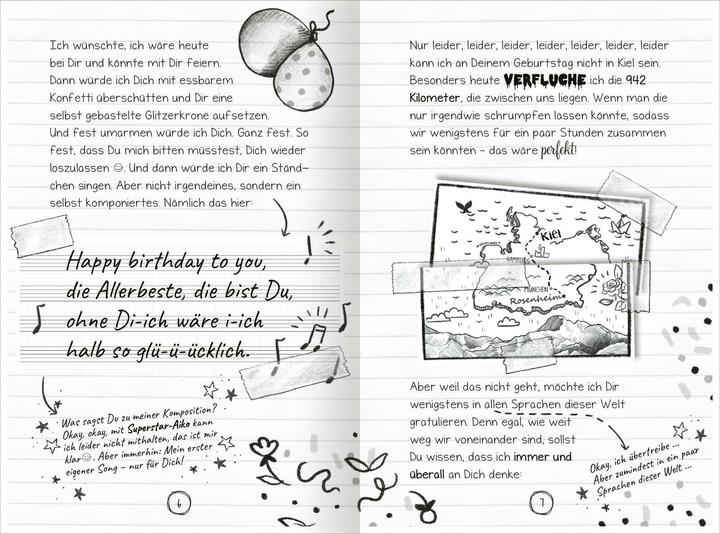 Ich wünschte, ich wäre heute
bei Dir und könnte mit Dir feiern.
Dann würde ich Dich mit essbarem
Konfetti überschütten und Dir eine
selbst gebastelte Glitzerkrone aufsetzen.
Und fest umarmen würde ich Dich. Ganz fest. So
fest, dass Du mich bitten müsstest, Dich wieder
loszulassen ☺. Und dann würde ich Dir ein Ständ-
chen singen. Aber nicht irgendeines, sondern ein
selbst komponiertes. Nämlich das hier:
Happy birthday to you,
die Allerbeste, die bist Du,
ohne Di-ich wäre i-ich
halb so glü-ü-ücklich.
Was sagst Du zu meiner Komposition?
Okay, okay, mit Superstar-Aiko kann
ich leider nicht mithalten, das ist mir
klar☺. Aber immerhin: Mein erster
eigener Song – nur für Dich!
6
Nur leider, leider, leider, leider, leider, leider, leider
kann ich an Deinem Geburtstag nicht in Kiel sein.
Besonders heute VERFLUCHE ich die 942
Kilometer, die zwischen uns liegen. Wenn man die
nur irgendwie schrumpfen lassen könnte, sodass
wir wenigstens für ein paar Stunden zusammen
sein könnten – das wäre perfekt!
Kiel
HAMBURG
MÜNCHEN
Rosenheim
Aber weil das nicht geht, möchte ich Dir
wenigstens in allen Sprachen dieser Welt
gratulieren. Denn egal, wie weit
weg wir voneinander sind, sollst
Du wissen, dass ich immer und
überall an Dich denke:
Okay, ich übertreibe ...
Aber zumindest in ein paar
Sprachen dieser Welt ...
7